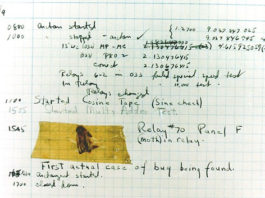 9
0800 antan started { 1.2700 9.037 847 025
1000 " stopped - antan ✓ 9.037 846 995
13 uc (032) MP - MC 4.615925059(
(033) PRO 2 2.130476415
correct 2.130676415
Relays 6-2 in 033 failed special speed test
in relay " test.
Relays changed
1100 Started Cosine Tape (Sine check)
1525 Started Multi Adder Test.
1545 Relay #70 Panel F
(moth) in relay.
First actual case of bug being found.
antangent started.
1700 closed down.